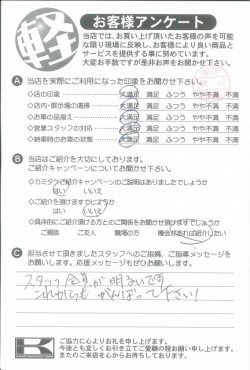 軽
お客様アンケート
当店では、お買い上げ頂いたお客様の声を可能
な限り現場に反映し、お客様により良い商品と
サービスを提供する事に努めております。
大変お手数ですが是非お声をお聞かせ下さい。
A 当店を実際にご利用になった印象をお聞かせ下さい。
◇店の印象 大満足 満足 ふつう やや不満 不満
◇店内・展示場の清掃 大満足 満足 ふつう やや不満 不満
◇お車の品揃え 大満足 満足 ふつう やや不満 不満
◇営業スタッフの対応 大満足 満足 ふつう やや不満 不満
◇納車時のお車の状態 大満足 満足 ふつう やや不満 不満
B 当店はご紹介を大切にしております。
ご紹介キャンペーンについてお聞かせ下さい。
◇カミタケご紹介キャンペーンのご説明はありましたでしょうか
はい いいえ
◇ご紹介を頂けますでしょうか
はい いいえ
◇具体的にご紹介頂ける方とのご関係をお聞かせ頂けますでしょうか
ご親族 ご友人 職場の方 機会があれば紹介したい
C 担当させて頂きましたスタッフへのご指摘、ご指導メッセージを
お願いします。応援メッセージもぜひお願いします。
スタッフ全員が明るいです
これからも がんばって下さい!
K
ご協力に心よりお礼を申し上げます。
今後とも宜しくお引き立てご愛顧の程お願い申し上げます。
またのご来店を心からお待ちしております。